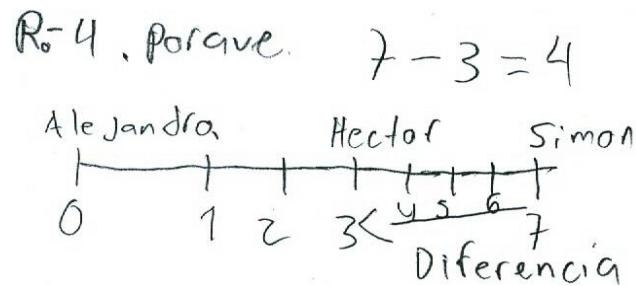 R.-4. Porque. 7-3=4
Alejandra Hector Simon
0 1 2 3< 4 5 6 7
Diferencia